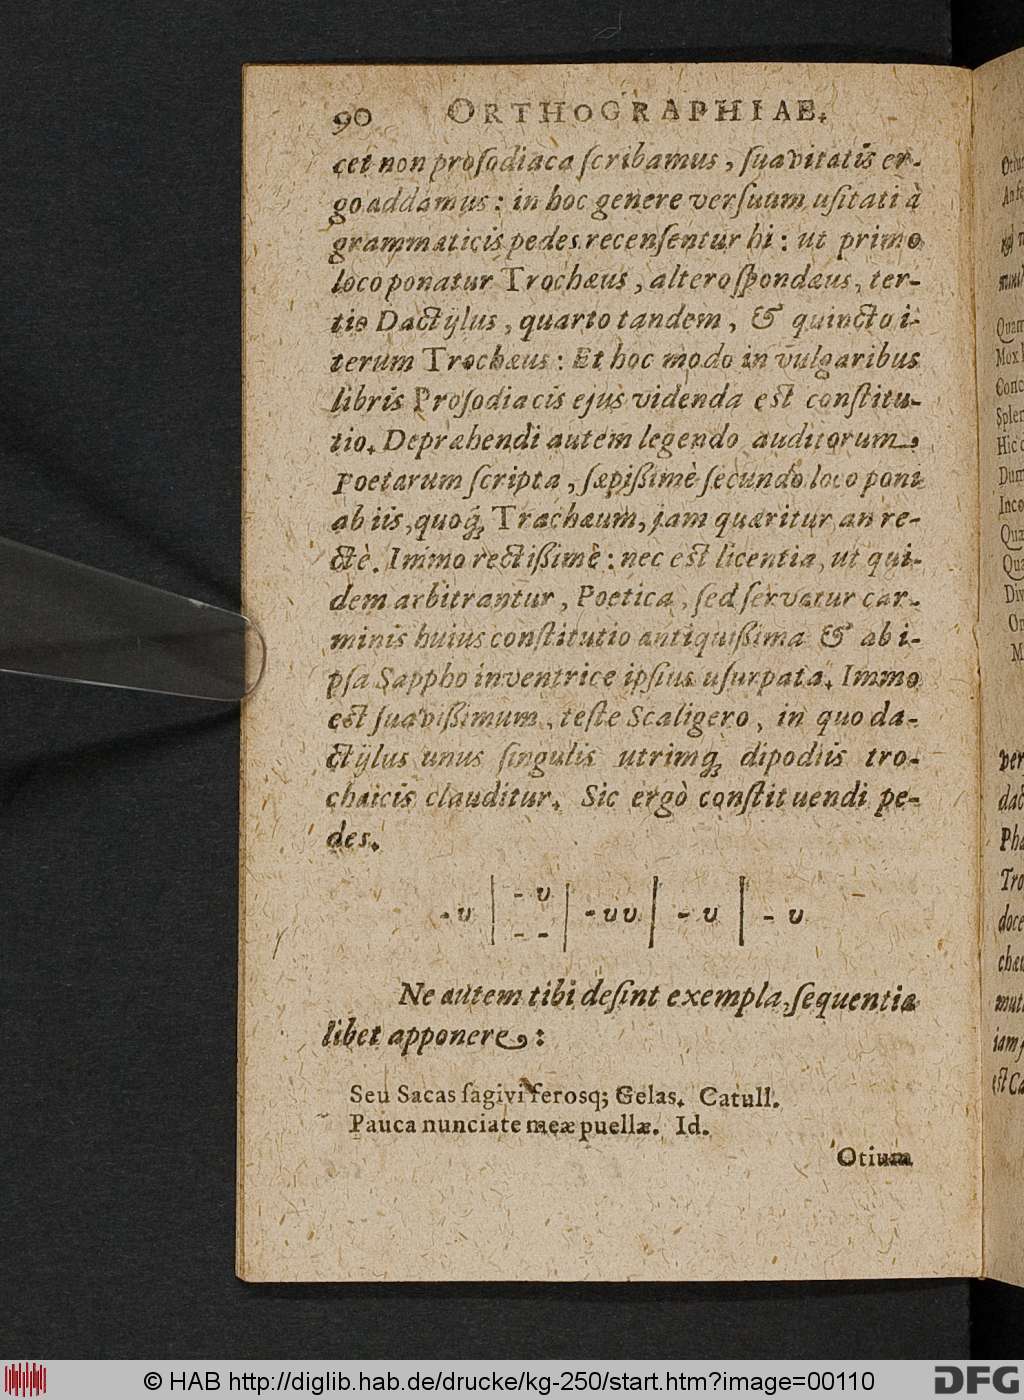 90 ORTHOGRAPHIAE.
cet non prosodiaca scribamus, suavitatis er-
go addamus: in hoc genere versuum usitati à
grammaticis pedes recensentur hi: ut primo
loco ponatur Trochæus, altero spondæus, ter-
tio Dactÿlus, quarto tandem, & quincto i-
terum Trochæus: Et hoc modo in vulgaribus
libris Prosodiacis ejus videnda est constitu-
tio. Depræhendi autem legendo auditorum,
Poetarum scripta, sæpißimè secundo loco poni
ab iis, quoq́; Trachæum, jam quæritur an re-
ctè. Immo rectißimè: nec est licentia, ut qui-
dem arbitrantur, Poetica, sed servatur car-
minis huius constitutio antiquißima & ab i-
psa Sappho inventrice ipsius usurpata. Immo
est suavißimum, teste Scaligero, in quo da-
ctÿlus unus singulis utrimq́; dipodiis tro-
chaicis clauditur. Sic ergò constituendi pe-
des.
- υ | - υ | - υυ | - υ | - υ
- -
Ne autem tibi desint exempla, sequentia
libet apponere:
Seu Sacas sagivi ferosq; Gelas. Catull.
Pauca nunciate meæ puellæ. Id.
Otium
© HAB http://diglib.hab.de/drucke/kg-250/start.htm?image=00110
DFG